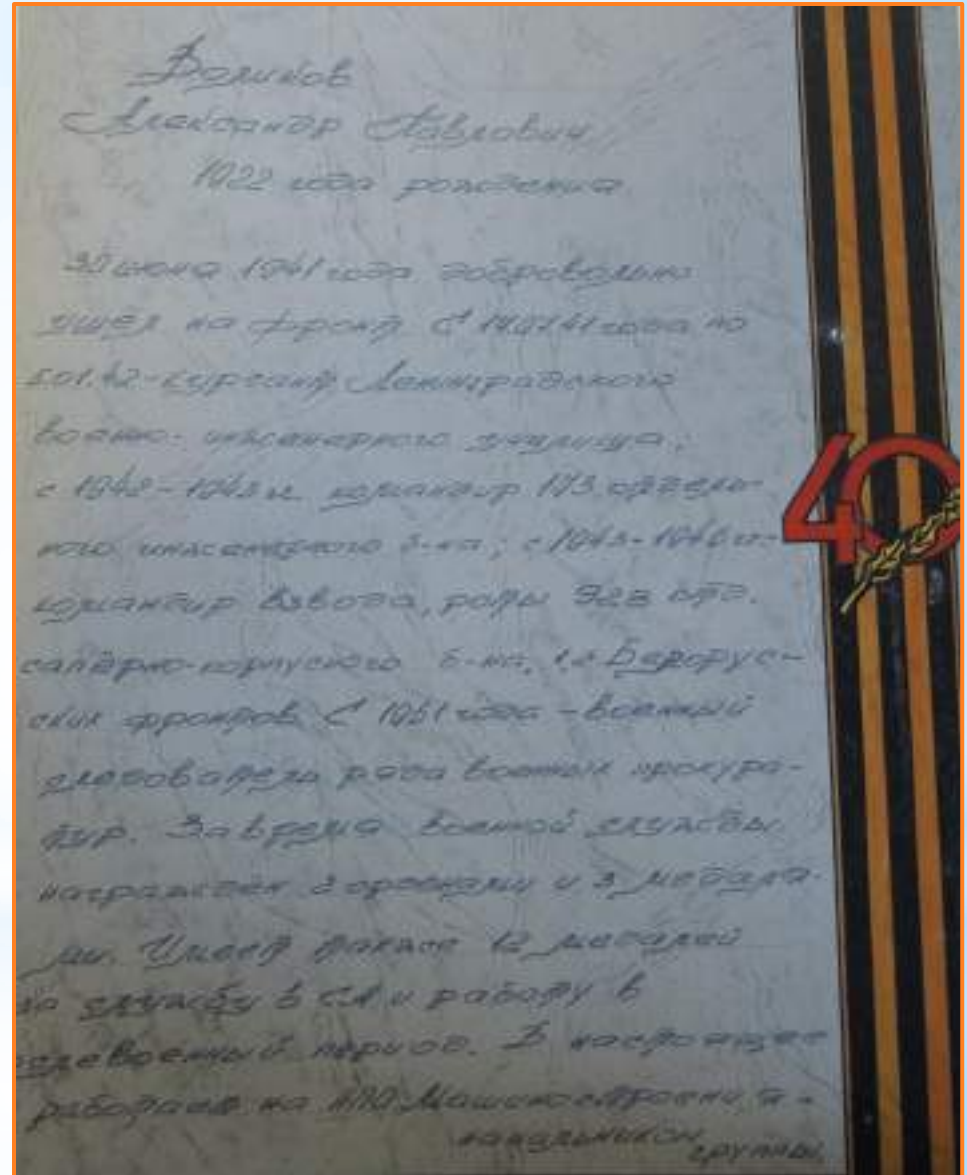 Александр Павлович
1922 года рождения
30 июня 1941 года добровольно
ушел на фронт С года по
5.01.42 - курсант Ленинградского
военно-инженерного училища;
с 1942-1943 гг командир 173 отдель-
ного инженерного б-на; с 1943-1946 гг-
командир взвода, роты 328 отд.
сапёрно-корпусного б-на, Белорус-
ских фронтов С 1951 года - военный
следователь ряда военных прокура-
тур. За время военной службы
награжден 2 орденами и 3 медаля-
ми. Имеет также 12 медалей
за службу в СА и работу в
послевоенный период. В настоящее
работает на НПО Машиностроения -
начальником группы.
40